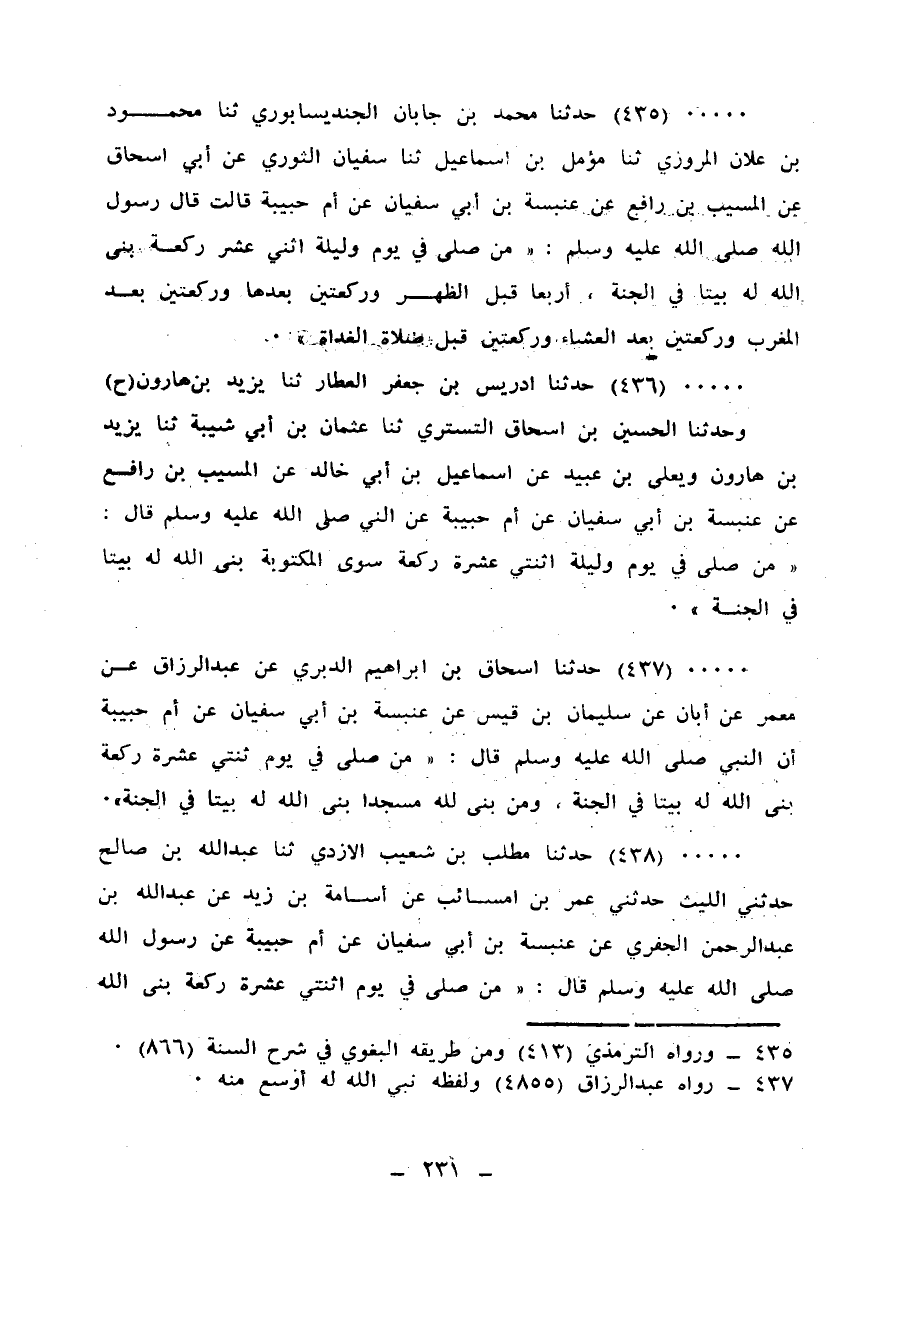 ..... (٤٣٥) حدثنا محمد بن جابان الجنديسابوري ثنا محمـــود
بن علان المروزي ثنا مؤمل بن اسماعيل ثنا سفيان الثوري عن أبي اسحاق
عن المسيب بن رافع عن عنبسة بن أبي سفيان عن أم حبيبة قالت قال رسول
الله صلى الله عليه وسلم : « من صلى في يوم وليلة اثني عشر ركعـة بنى
الله له بيتا في الجنة ، أربعا قبل الظهـــر وركعتين بعدها وركعتين بعــد
المغرب وركعتين بعد العشاء وركعتين قبل صلاة الغداة » ٠
..... (٤٣٦) حدثنا ادريس بن جعفر العطار ثنا يزيد بن هارون(ح)
وحدثنا الحسين بن اسحاق التستري ثنا عثمان بن أبي شيبة ثنا يزيد
بن هارون ويعلى بن عبيد عن اسماعيل بن أبي خالد عن المسيب بن رافــع
عن عنبسة بن أبي سفيان عن أم حبيبة عن النبي صلى الله عليه وسلم قال :
« من صلى في يوم وليلة اثنتي عشرة ركعة سوى المكتوبة بنى الله له بيتا
في الجنــة » ٠
..... (٤٣٧) حدثنا اسحاق بن ابراهيم الدبري عن عبدالرزاق عــن
معمر عن أبان عن سليمان بن قيس عن عنبسة بن أبي سفيان عن أم حبيبة
أن النبي صلى الله عليه وسلم قال : « من صلى في يوم ثنتي عشرة ركعة
بنى الله له بيتا في الجنة ، ومن بنى لله مسجدا بنى الله له بيتا في الجنة»٠
..... (٤٣٨) حدثنا مطلب بن شعيب الازدي ثنا عبدالله بن صالح
حدثني الليث حدثني عمر بن امســائب عن أســامة بن زيد عن عبدالله بن
عبدالرحمن الجفري عن عنبسة بن أبي سفيان عن أم حبيبة عن رسول الله
صلى الله عليه وسلم قال : « من صلى في يوم اثنتي عشرة ركعة بنى الله
٤٣٥ ــ ورواه الترمذي (٤١٣) ومن طريقه البغوي في شرح السنة (٨٦٦) ٠
٤٣٧ ــ رواه عبدالرزاق (٤٨٥٥) ولفظه نبي الله له أوسع منه ٠
ــ ٢٣١ ــ